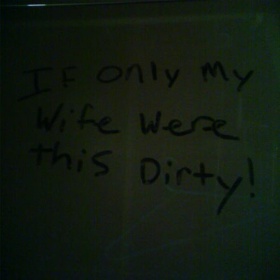 IF only My
Wife Were
this Dirty!